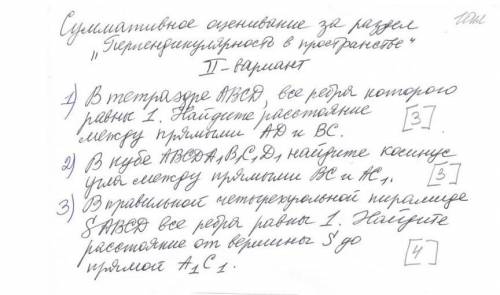 Суммативное оценивание за раздел
„Перпендикулярность в пространстве"
II-вариант
1) В тетраэдре ABCD, все ребра которого
равны 1. Найдите расстояние
между прямыми AD и BC. [3]
2) В кубе ABCDA₁B₁C₁D₁ найдите косинус
угла между прямыми BC и AC₁. [3]
3) В правильной четырехугольной пирамиде
SABCD все ребра равны 1. Найдите
расстояние от вершины S до
прямой A₁C₁. [4]